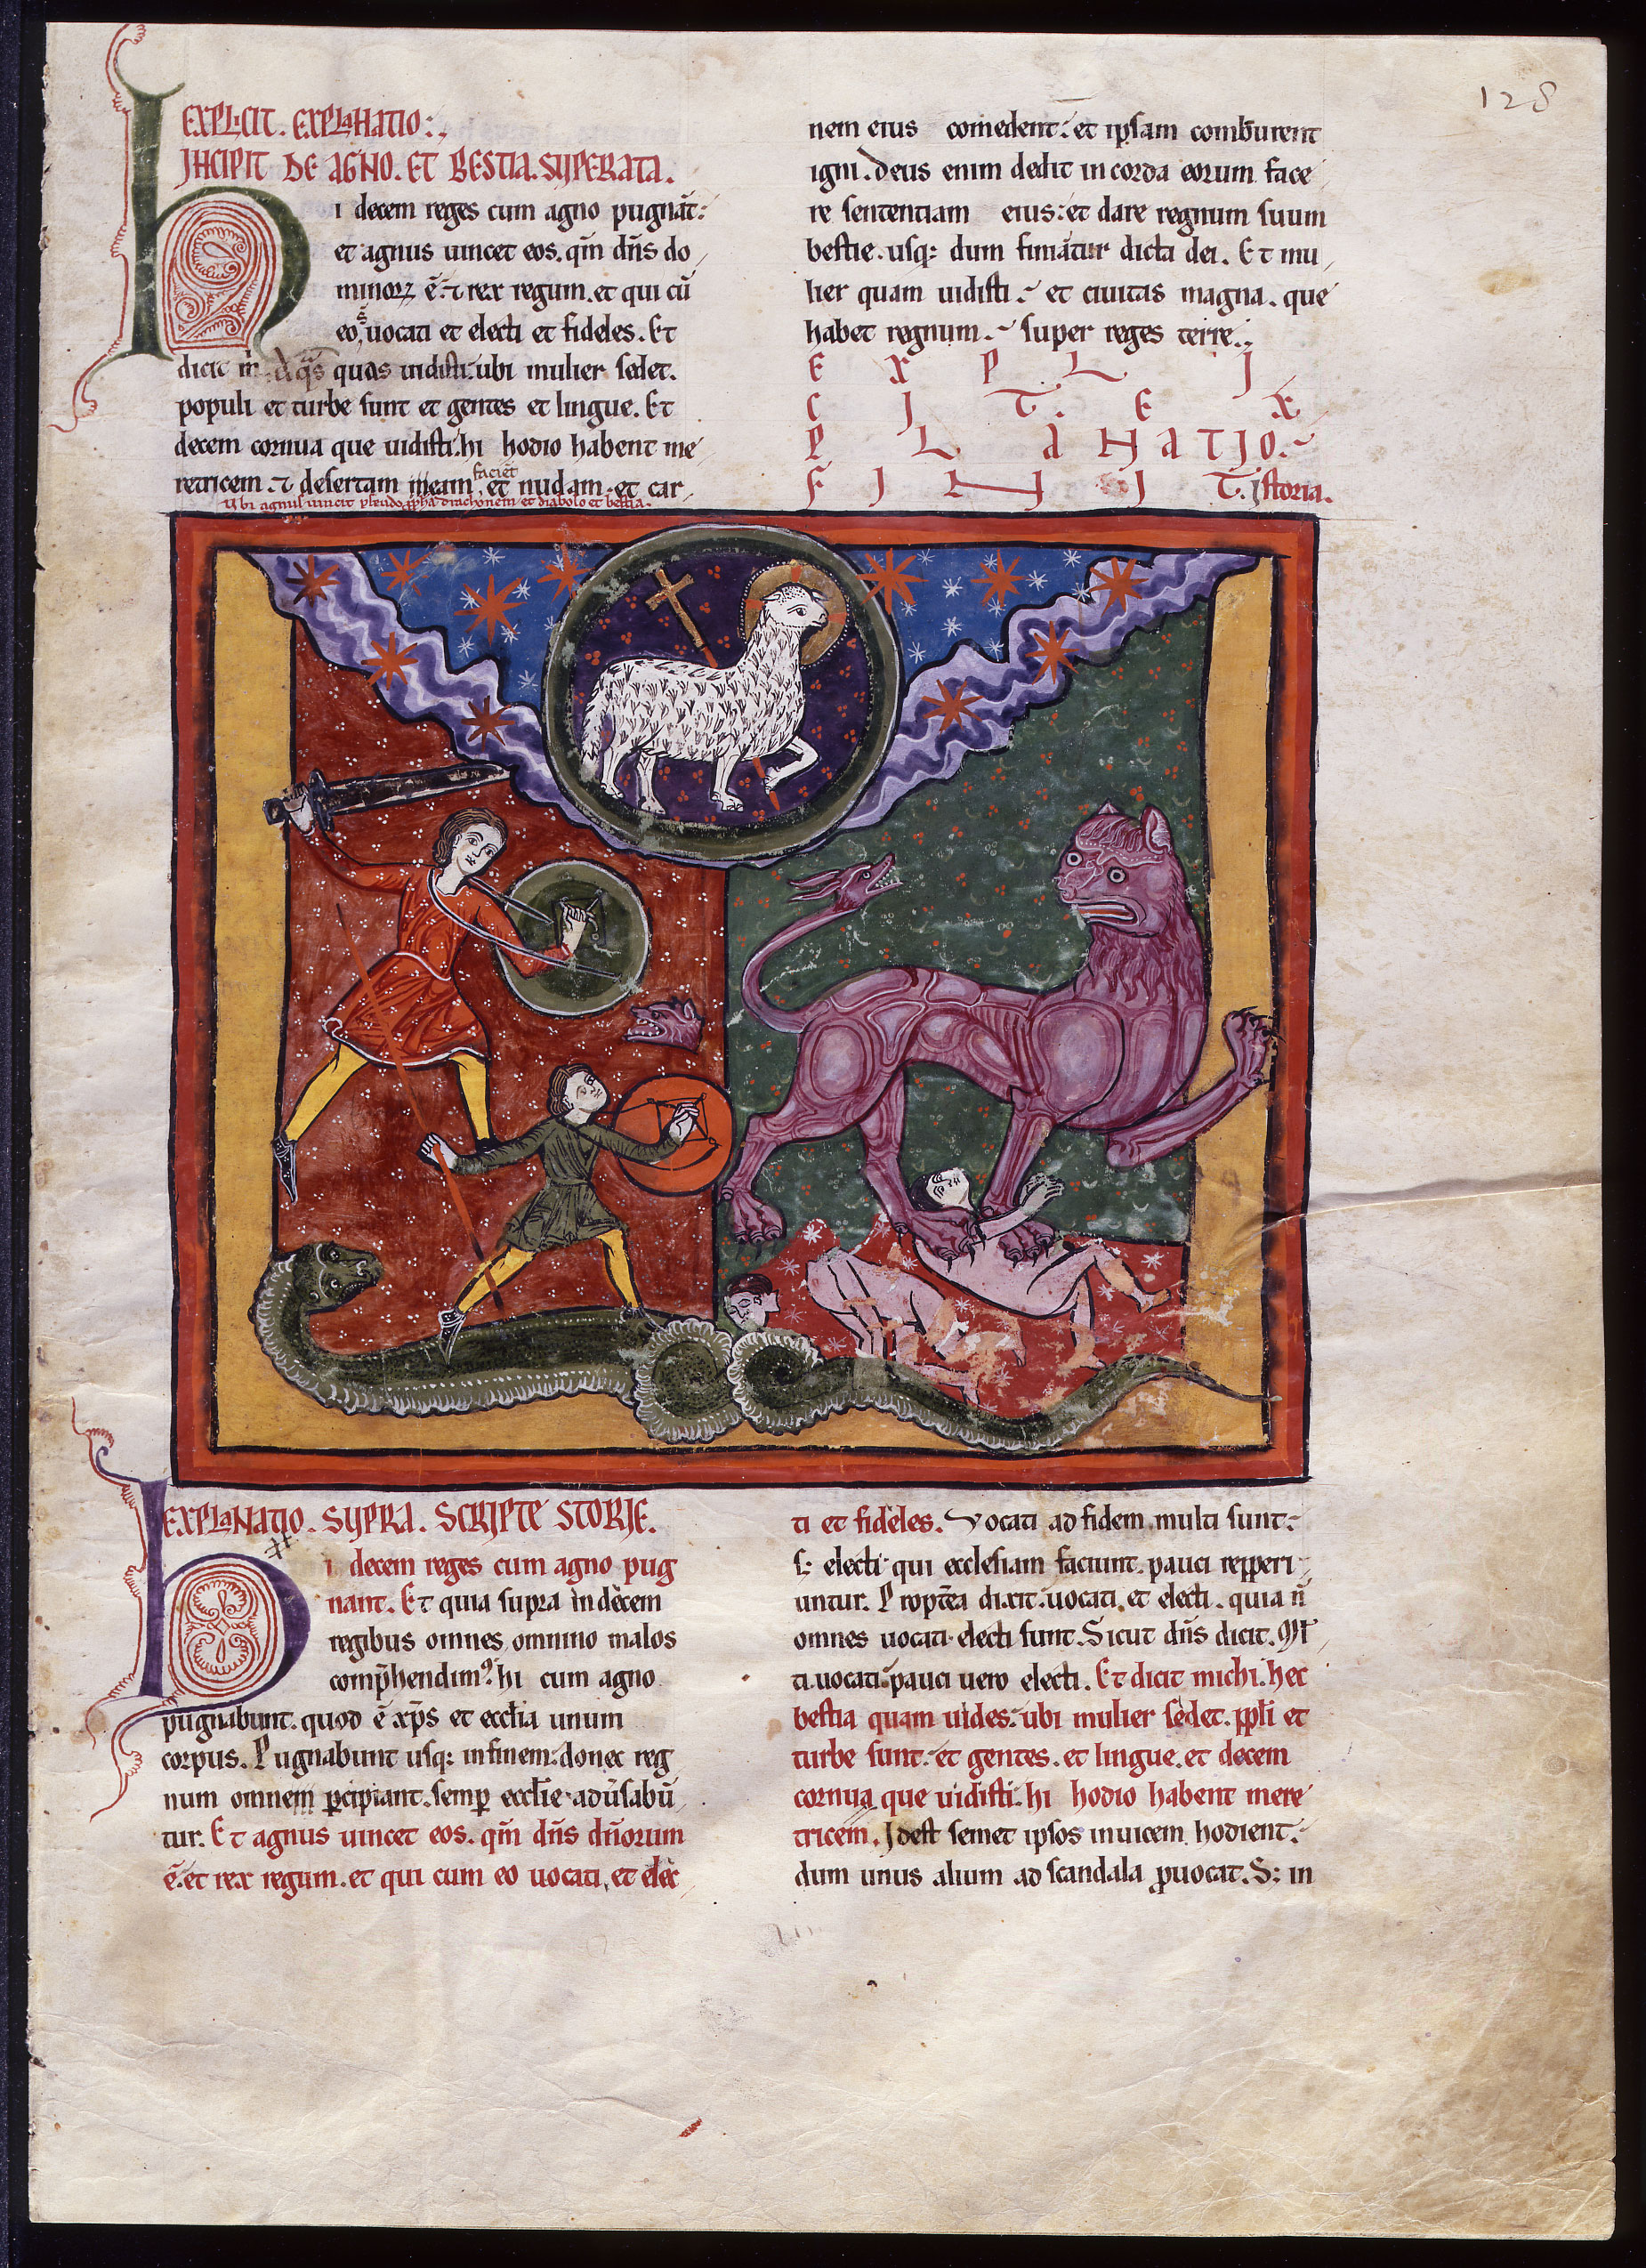 128
EXPLICIT. EXPLANATIO:.
INCIPIT DE AGNO. ET BESTIA. SUPERATA.
Hi decem reges cum agno pugnāt:
et agnus uincet eos. qm̄ dn̄s do
minorꝝ ē. ⁊ rex regum. et qui cū
eo sūt uocati et electi et fideles. Et
dicit m̄. Aq̄s quas uidisti. ubi mulier sedet.
populi et turbe sunt et gentes et lingue. Et
decem cornua que uidisti. hi hodio habent me
retricem. ⁊ desertam meam faciēt et nudam. et car
nem eius comedent: et ipsam comburent
igni. Deus enim dedit in corda eorum face
re sententiam eius: et dare regnum suum
bestie. usq: dum finiātur dicta dei. Et mu
lier quam uidisti. et ciuitas magna. que
habet regnum. super reges terre.,
E X P L I
C I T. E X
P L A N A T I O.
F I N I T. Istoria.
Ubi agnus uincit pseudo ꝓpha drachonem et diabolo et bestia.
EXPLANATIO. SUPRA. SCRIPTE STORIE.
Hi decem reges cum agno pug
nant. Et quia supra in decem
regibus omnes omnino malos
comp̄hendimꝰ. hi cum agno
pugnabunt. quod ē xp̄s et eccl̄ia unum
corpus. Pugnabunt usq: in finem: donec reg
num omnem ꝑcipiant. semꝑ eccl̄ie aduersabū
tur. Et agnus uincet eos. qm̄ dn̄s dn̄orum
ē. et rex regum. et qui cum eo uocati, et elec
ti et fideles. Vocati ad fidem multi sunt:
s: electi qui ecclesiam faciunt. pauci repperi
untur. Propt̄ea dixit. uocati, et electi. quia n̄
omnes uocati electi sunt. Sicut dn̄s dicit. Ml̄
ti uocati. pauci uero electi. Et dicit michi. hec
bestia quam uides. ubi mulier sedet. ppl̄i et
turbe sunt. et gentes. et lingue. et decem
cornua que uidisti. hi hodio habent mere
tricem. Idest semet ipsos inuicem hodient.
dum unus alium ad scandala ꝓuocat. S: in